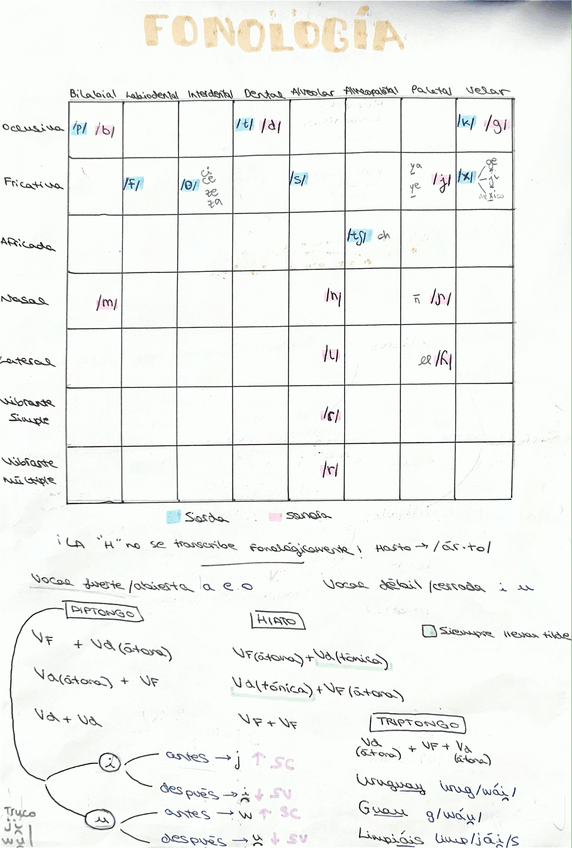 FONOLOGÍA
Bilabial Labiodental Interdental Dental Alveolar Alveopalatal Palatal Velar
Oclusiva /p/ /b/ /t/ /d/ /k/ /g/
Fricativa /f/ /θ/ ci ce zo za /s/ ya ye /j/ /x/ ge ji ju México
Africada /tʃ/ ch
Nasal /m/ /n/ ñ /ɲ/
Lateral /l/ ll /ʎ/
Vibrante Simple /ɾ/
Vibrante Múltiple /r/
Sorda Sonora
¡LA "H" no se transcribe fonológicamente! Harto → /ár.to/
Vocal fuerte/abierta a e o Vocal débil/cerrada i u
DIPTONGO HIATO
Siempre llevan tilde
VF + Vd(átona) VF(átona) + Vd(tónica)
Vd(átona) + VF Vd(tónica) + VF(átona)
Vd + Vd VF + VF
TRIPTONGO
Vd (átona) + VF + Vd (átona)
i antes → j ↑ SC
después → i̯ ↓ SV
u antes → w ↑ SC
después → u̯ ↓ SV
Uruguay urug/wái̯/
Guau g/wáu̯/
Limpiáis limp/jái̯/s
Truco